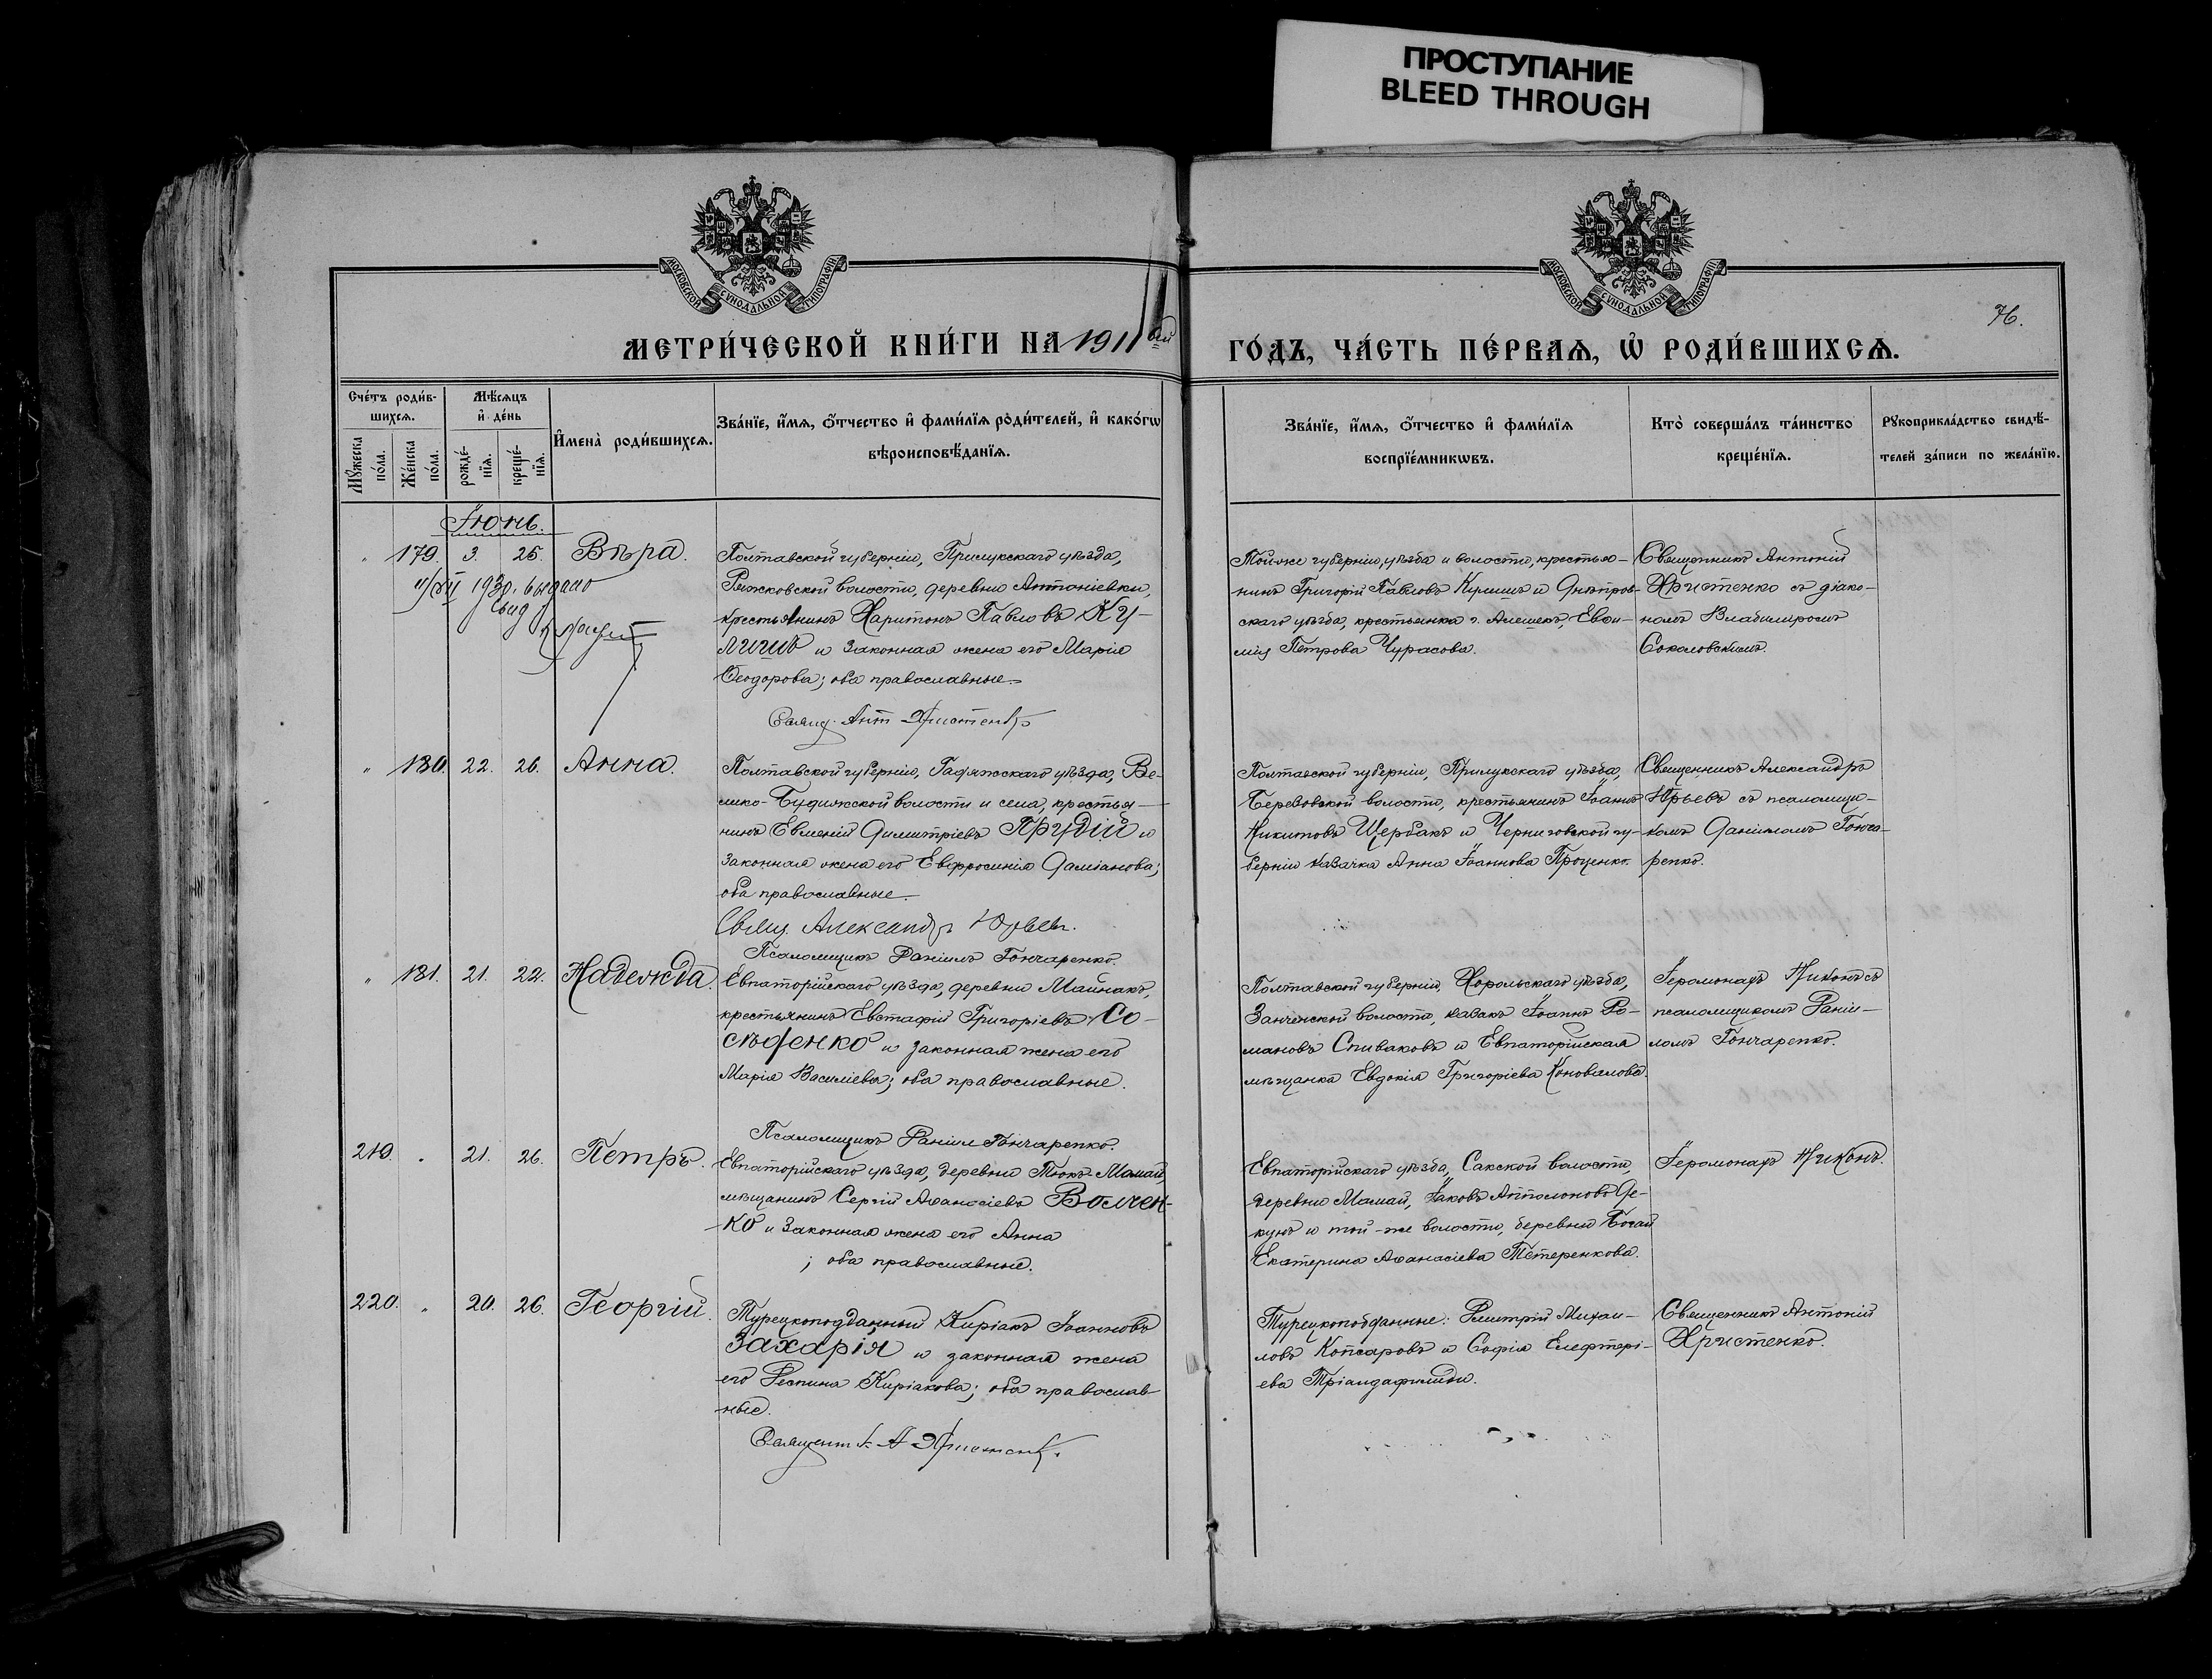 ПРОСТУПАНИЕ
BLEED THROUGH
МОСКОВСКОЙ СѴНОДАЛЬНОЙ ТИПОГРАФІИ
МОСКОВСКОЙ СѴНОДАЛЬНОЙ ТИПОГРАФІИ
76.
МЕТРИ́ЧЕСКОЙ КНИ́ГИ НА 1911ый
ГО́ДЪ, ЧА́СТЬ ПЕ́РВАѦ, Ѡ҆ РОДИ́ВШИХСѦ.
Сче́тъ роди́в-
шихсѧ.
Мꙋ́жеска
по́ла.
Же́нска
по́ла.
Мѣ́сѧцъ
и҆ де́нь
рожде́-
нїѧ.
креще́-
нїѧ.
И҆мена̀ роди́вшихсѧ.
Зва́нїе, и҆́мѧ, ѻ҆́тчество и҆ фами́лїѧ роди́телей, и҆ како́гѡ
вѣроисповѣ́данїѧ.
Зва́нїе, и҆́мѧ, ѻ҆́тчество и҆ фами́лїѧ
воспрїе́мникѡвъ.
Кто̀ соверша́лъ та́инство
креще́нїѧ.
Рꙋкоприкла́дство свидѣ́-
телей за́писи по жела́нїю.
Іюнь.
" 179. 3. 25. Вѣра.
11/XII 1930. выдано
Свид
Полтавской губерніи, Прилукскаго уѣзда,
Ряжковской волости, деревни Антоніевки,
крестьянинъ Харитонъ Павловъ Ку-
личъ и законная жена его Марія
Ѳеодорова; оба православные.
Свящ. Ант Христенко
Той-же губерніи, уѣзда и волости, крестья-
нинъ Григорій Павловъ и Днѣпров-
скаго уѣзда, крестьянка г. Алешекъ, Евѳи-
мія Петрова Чурасова.
Священникъ Антоній
Христенко съ діако-
номъ Владиміромъ
Соколовскимъ.
" 180. 22. 26. Анна.
Полтавской губерніи, Гадяжскаго уѣзда, Ве-
лико-Будижской волости и села, крестья-
нинъ Евменій Димитріевъ Прудій и
законная жена его Евфросинія Даміанова;
оба православные.
Свящ. Александръ Юрьевъ.
Псаломщикъ Даніилъ Гончаренко.
Полтавской губерніи, Прилукскаго уѣзда,
Березовской волости, крестьянинъ Іоаннъ
Никитовъ Щербакъ и Черниговской гу-
берніи казачка Анна Іоаннова Проценко.
Священникъ Александръ
Юрьевъ съ псаломщи-
комъ Даніиломъ Гонча-
ренко.
" 181. 21. 22. Надежда.
Евпаторійскаго уѣзда, деревни Майнакъ,
крестьянинъ Евстафій Григоріевъ Со-
сѣденко и законная жена его
Марія Василіева; оба православные.
Псаломщикъ Даніил Гончаренко.
Полтавской губерніи, Хорольскаго уѣзда,
волости, казакъ Іоаннъ Ро-
мановъ Спиваковъ и Евпаторійская
мѣщанка Евдокія Григоріева Коновалова.
Іеромонахъ Никонъ съ
псаломщикомъ Даніи-
ломъ Гончаренко.
219. " 21. 26. Петръ.
Евпаторійскаго уѣзда, деревни Тюкъ-Мамай,
мѣщанинъ Сергій Аѳанасіевъ Волчен-
ко и законная жена его Анна
; оба православные.
Евпаторійскаго уѣзда, Сакской волости,
деревни Мамай, Іаковъ Апполоновъ Де-
кунъ и той-же волости, деревни Богай
Екатерина Аѳанасіева Тетеренкова.
Іеромонахъ Никонъ.
220. " 20. 26. Георгій.
Турецкоподданный Киріакъ Іоанновъ
Захарія и законная жена
его Деспина Киріакова; оба православ-
ные.
Священникъ А Христенко.
Турецкоподданные: Димитрій Михаи-
ловъ Копсаровъ и Софія Елефтері-
ева Тріандафилиди.
Священникъ Антоній
Христенко.